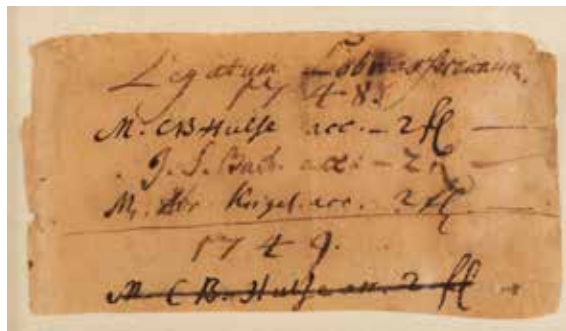 Legatum Lobwasserianum.
1748.
M. CB Hülse acc. – 2 fl –
J. S. Bach. acc. – 2 –
M. Abr Krigel. acc. 2 fl.
1749.
M. C B. Hülse acc. 2 fl